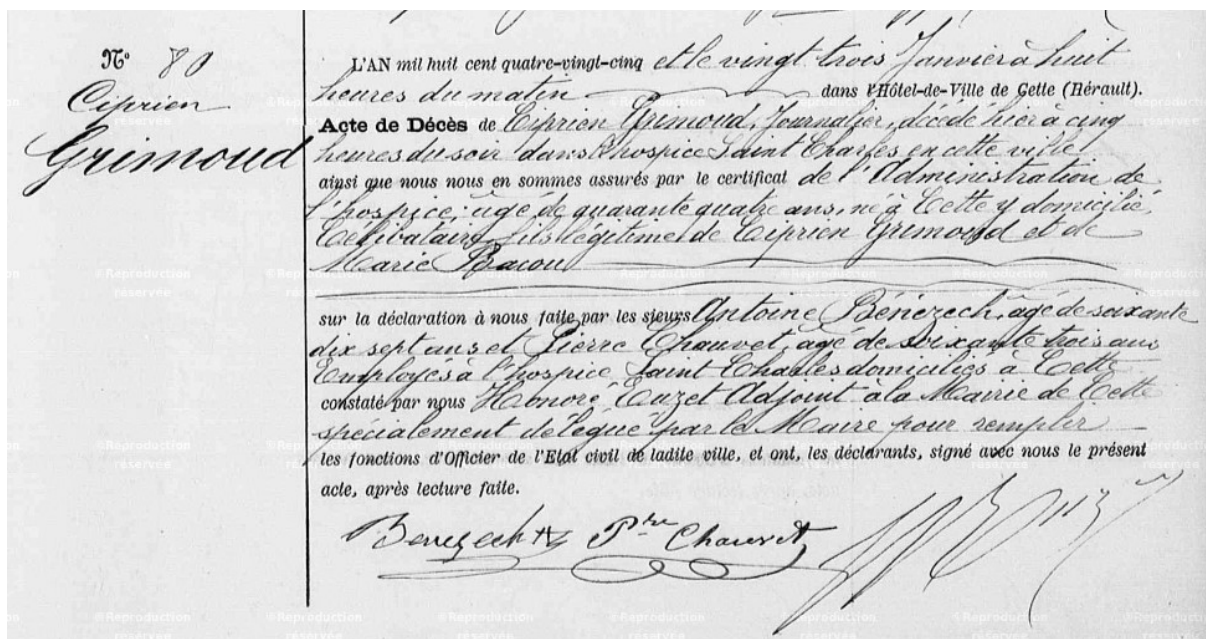 N° 80
Ciprien
Grimoud
L'AN mil huit cent quatre-vingt-cinq et le vingt trois Janvier à huit
heures du matin dans l'Hôtel-de-Ville de Cette (Hérault).
Acte de Décès de Ciprien Grimoud, Journalier, décédé hier à cinq
heures du soir dans l'hospice Saint Charles en cette ville
ainsi que nous nous en sommes assurés par le certificat de l'Administration de
l'hospice, âgé de quarante quatre ans, né à Cette y domicilié,
Célibataire, fils légitime de Ciprien Grimoud et de
Marie
sur la déclaration à nous faite par les sieurs Antoine Bénézech, âgé de soixante
dix sept ans et Pierre Chauvet, âgé de soixante trois ans
Employés à l'hospice Saint Charles domiciliés à Cette
constaté par nous Honoré Euzet Adjoint à la Mairie de Cette
spécialement délégué par le Maire pour remplir
les fonctions d'Officier de l'Etat civil de ladite ville, et ont, les déclarants, signé avec nous le présent
acte, après lecture faite.
Benezech Ae Pre Chauvet